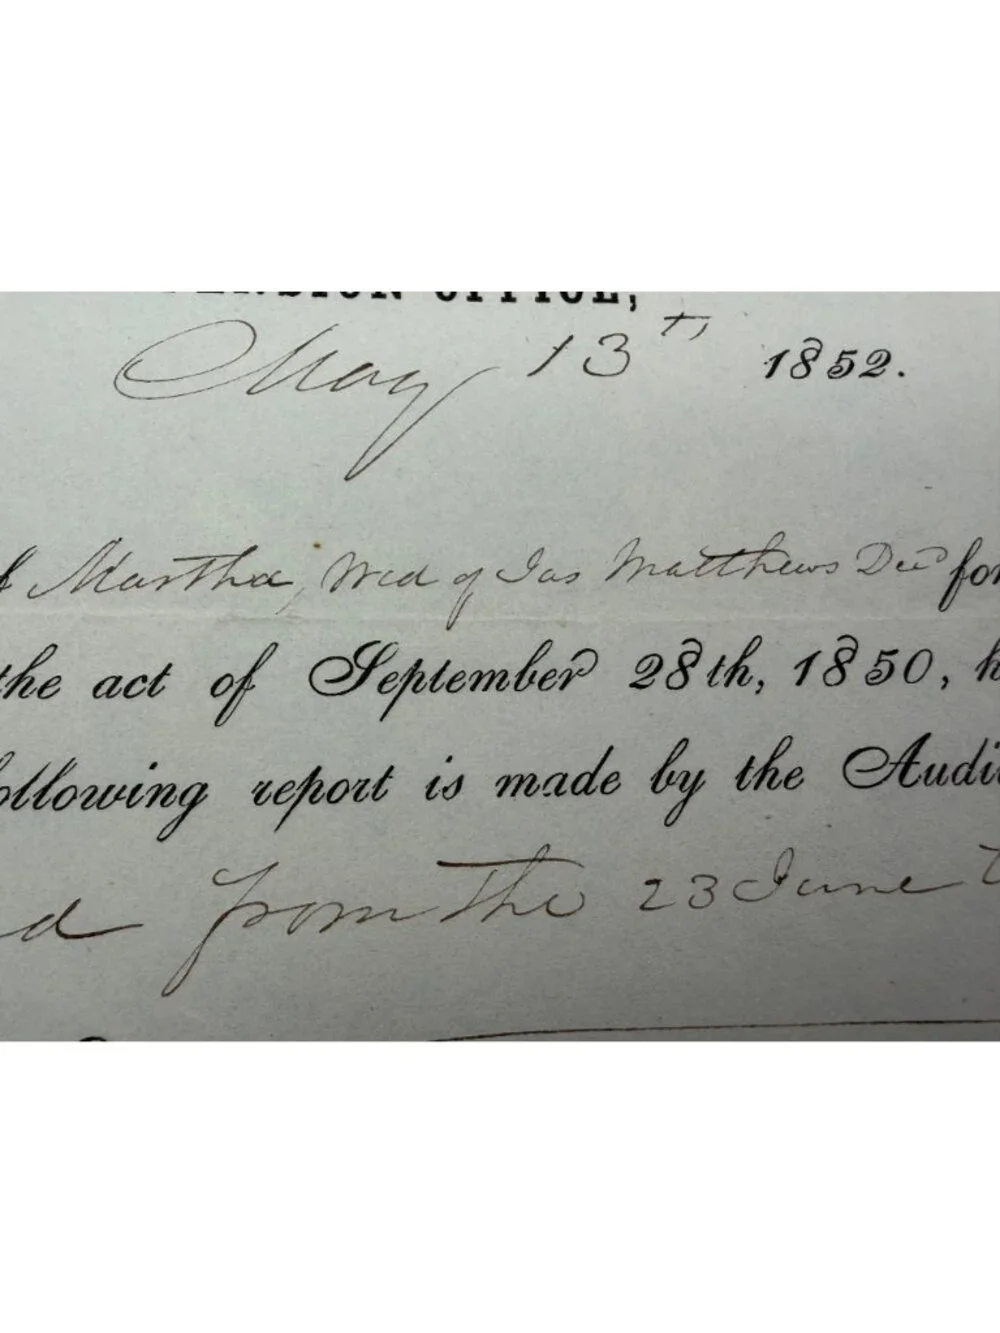 PENSION OFFICE,
May 13th 1852.
f Martha, Wid of Jas Matthews Decd for
the act of September 28th, 1850, h
ollowing report is made by the Audi
d from the 23 June t